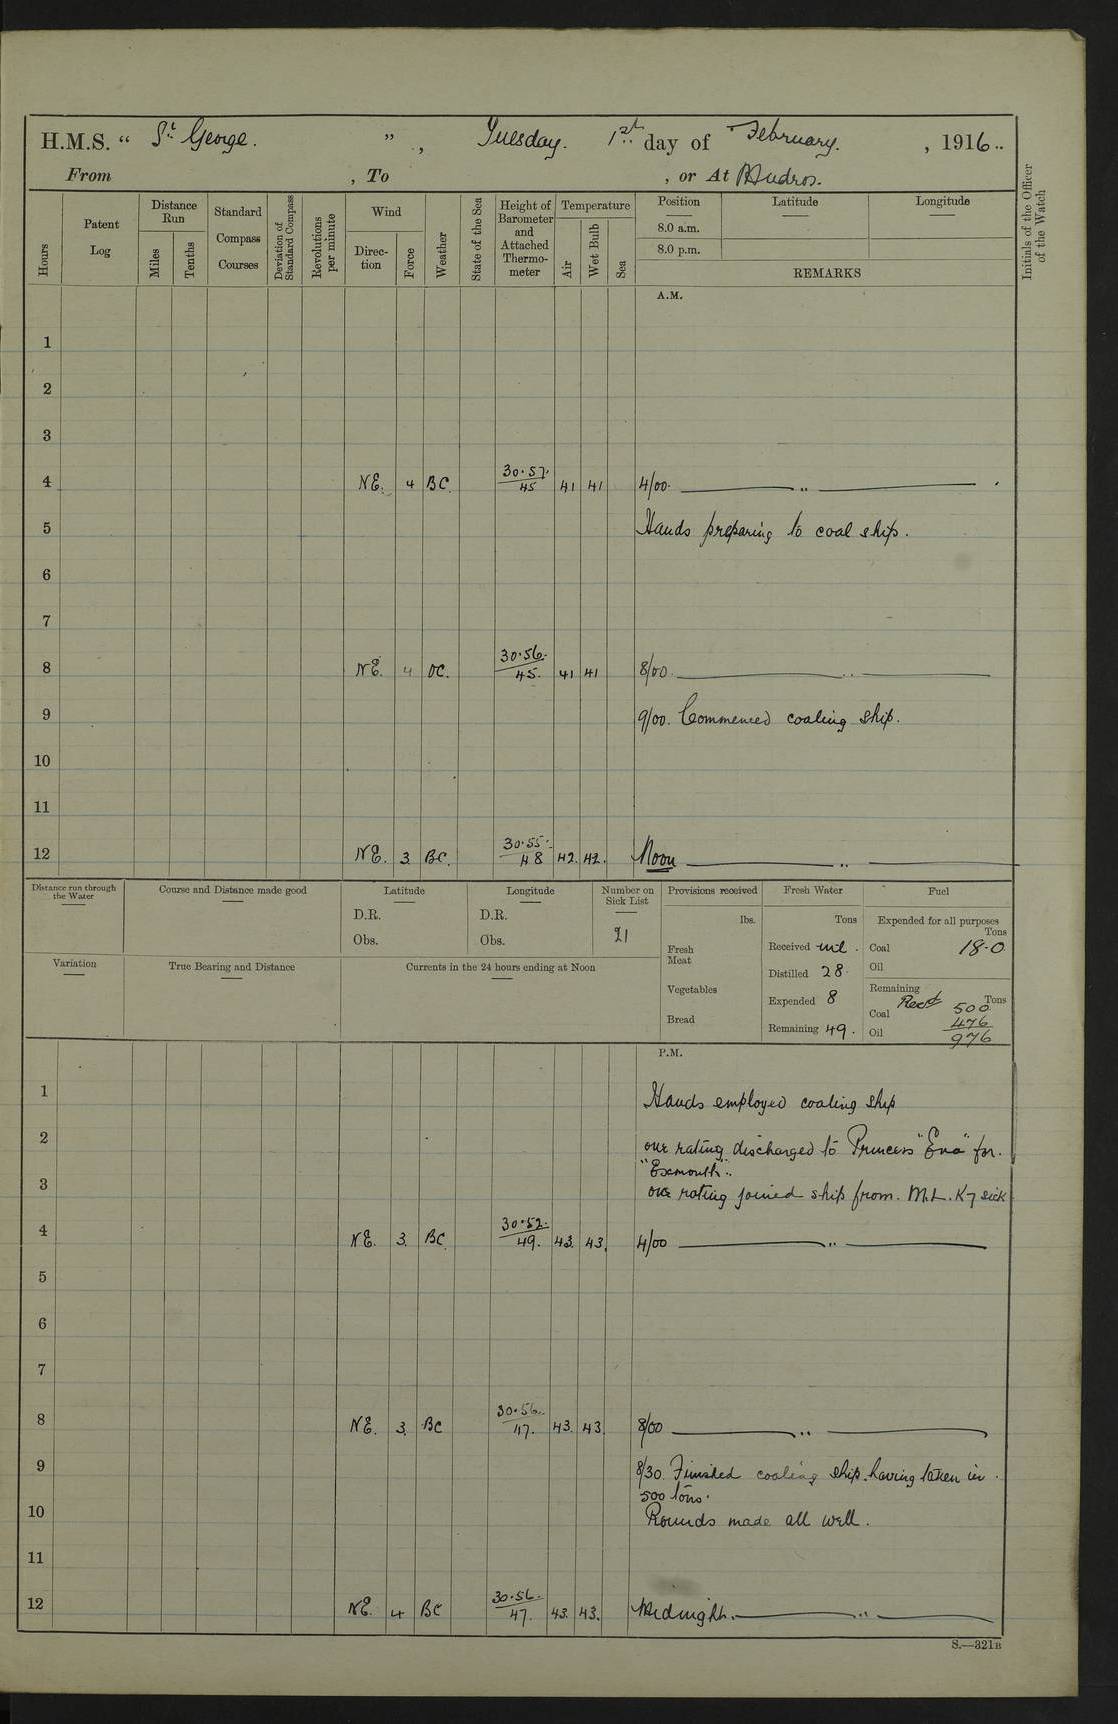 H.M.S. “ St. George. ” , Tuesday. 1st day of February. , 1916..
From , To , or At Mudros.
Hours
Patent Log
Distance Run
Miles
Tenths
Standard Compass Courses
Deviation of Standard Compass
Revolutions per minute
Wind
Direction
Force
Weather
State of the Sea
Height of Barometer and Attached Thermometer
Temperature
Air
Wet Bulb
Sea
Position
8.0 a.m.
8.0 p.m.
Latitude
Longitude
REMARKS
Initials of the Officer of the Watch
A.M.
1
2
3
4 NE. 4 BC. 30·57. 45 41 41 4/00. ”
5 Hands preparing to coal ship.
6
7
8 NE. 4 OC. 30·56. 45. 41 41 8/00. ”
9 9/00. Commenced coaling ship.
10
11
12 NE. 3 BC. 30·55. 48 42. 42. Noon ”
Distance run through the Water
Course and Distance made good
Latitude
D.R.
Obs.
Longitude
D.R.
Obs.
Number on Sick List
21
Variation
True Bearing and Distance
Currents in the 24 hours ending at Noon
Provisions received
lbs.
Fresh Meat
Vegetables
Bread
Fresh Water
Tons
Received nil.
Distilled 28.
Expended 8
Remaining 49.
Fuel
Expended for all purposes
Tons
Coal 18·0
Oil
Remaining
Tons
Coal Recd 500
476
Oil 976
P.M.
1 Hands employed coaling ship
2 one rating discharged to Princess "Ena" for.
"Exmouth"..
3 one rating joined ship from. M.L. K7 sick
4 NE. 3. BC 30·52. 49. 43. 43. 4/00 ”
5
6
7
8 NE. 3. BC 30·56. 47. 43. 43. 8/00 ”
9 8/30. Finished coaling ship. having taken in.
500 tons.
10 Rounds made all well.
11
12 NE. 4 BC 30·56. 47. 43. 43. Midnight. ”
S.—321B